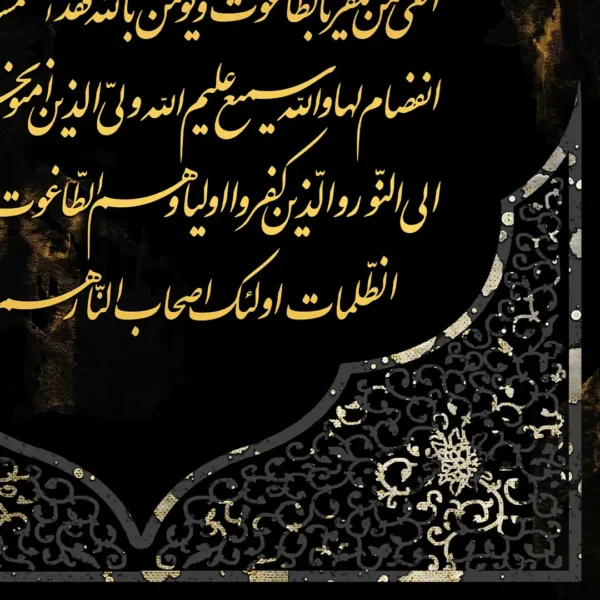 الغی فمن یکفر بالطاغوت ویؤمن بالله فقد ا
انفصام لها والله سمیع علیم الله ولیّ الذین امنو یخ
الی النّور والّذین کفروا اولیاؤهم الطّاغوت
الظّلمات اولئک اصحاب النّار هم